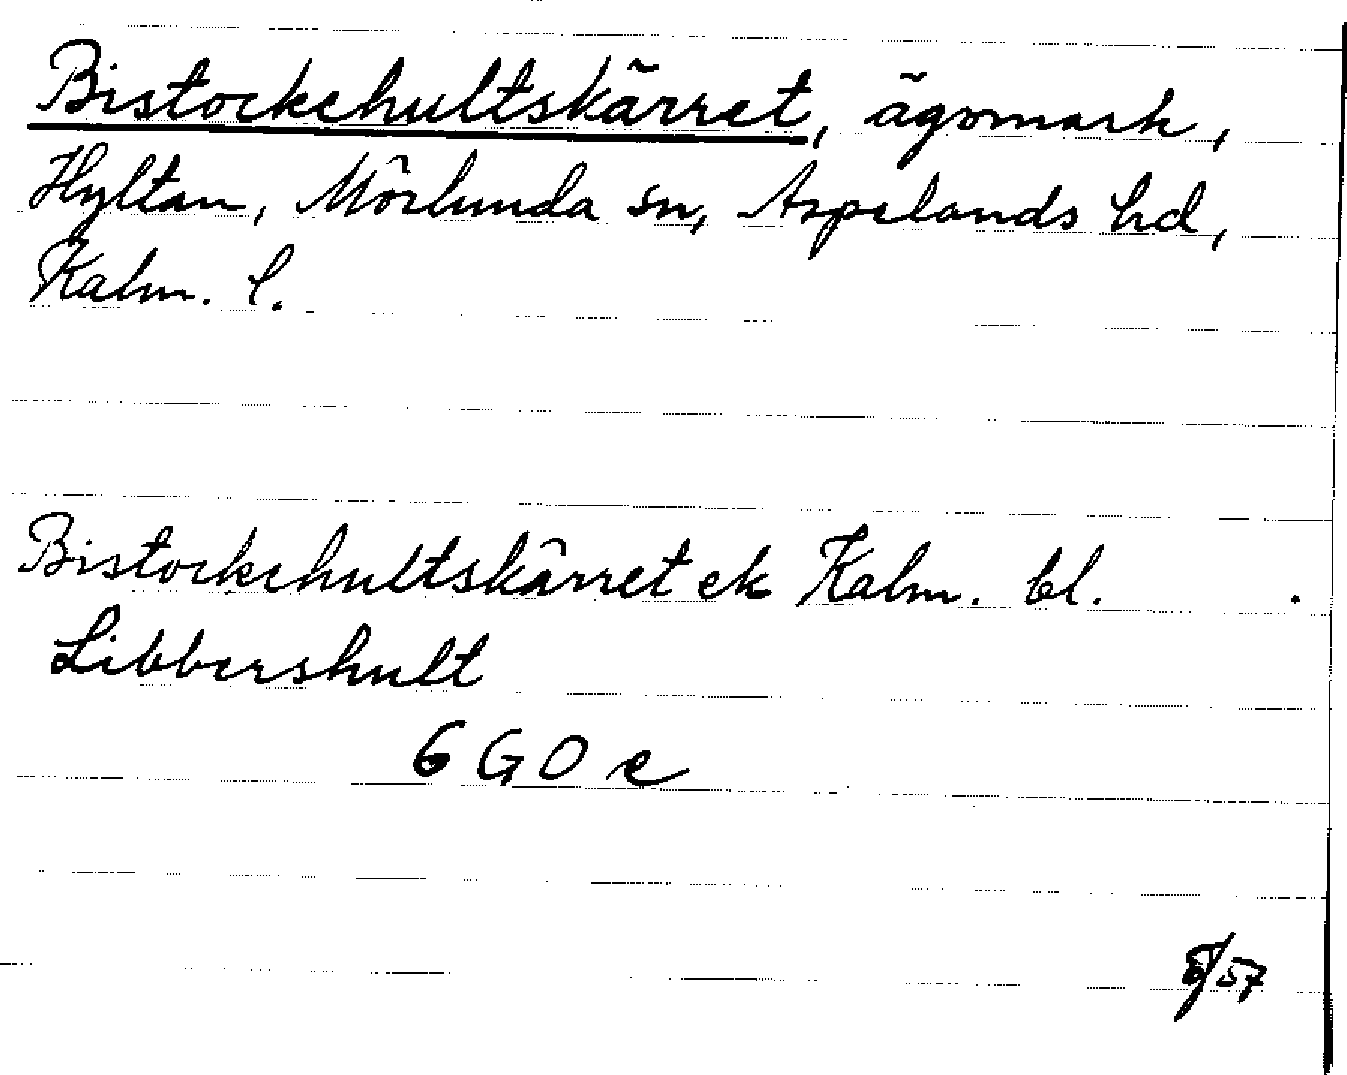 Bistockehultskärret, ägomark,
Hyltan, Mörlunda sn, Aspelands hd,
Kalm. l.
Bistockehultskärret ek Kalm. bl.
Libbershult
6 G 0 e